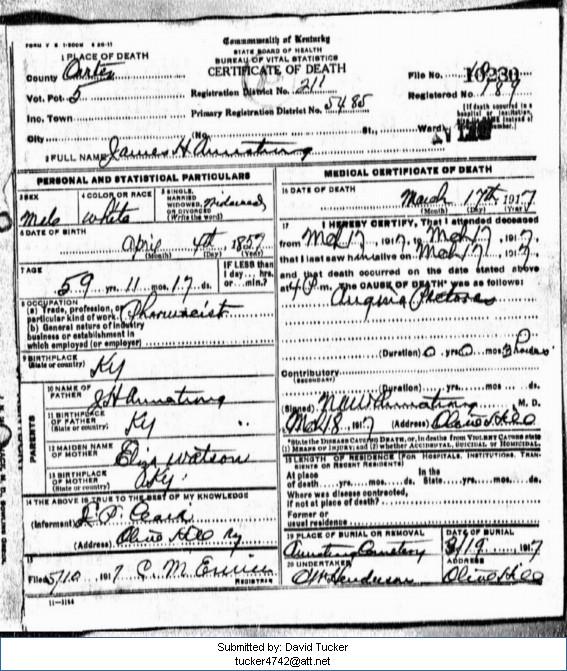 FORM V S 1-500M 8-20-11
Commonwealth of Kentucky
STATE BOARD OF HEALTH
BUREAU OF VITAL STATISTICS
CERTIFICATE OF DEATH
1 PLACE OF DEATH
County Carter
Vot. Pct. 5
Inc. Town
City
Registration District No. 211
Primary Registration District No. 5485
(No. St., Ward)
File No. 10230
Registered No. 189
[If death occurred in a hospital or institution, instead of number.]
2 FULL NAME James H Armstrong
PERSONAL AND STATISTICAL PARTICULARS
3 SEX
Male
4 COLOR OR RACE
White
5 SINGLE, MARRIED WIDOWED, OR DIVORCED (Write the word)
Widowed
6 DATE OF BIRTH
April 4th, 1857
(Month) (Day) (Year)
7 AGE
59 yrs. 11 mos. 17 ds.
IF LESS than 1 day... hrs. or... min.?
8 OCCUPATION
(a) Trade, profession, or particular kind of work. Pharmacist
(b) General nature of industry business or establishment in which employed (or employer)
9 BIRTHPLACE
(State or country)
Ky
PARENTS
10 NAME OF FATHER
J H Armstrong
11 BIRTHPLACE OF FATHER
(State or country)
Ky
12 MAIDEN NAME OF MOTHER
Eliza Watson
13 BIRTHPLACE OF MOTHER
(State or country)
Ky.
14 THE ABOVE IS TRUE TO THE BEST OF MY KNOWLEDGE
(Informant)
(Address) Olive Hill Ky
15
Filed 5/10, 1917 C. M.
REGISTRAR
11-3184
MEDICAL CERTIFICATE OF DEATH
16 DATE OF DEATH
March 17th 1917
(Month) (Day) (Year)
17 I HEREBY CERTIFY, That I attended deceased
from Mch 17, 1917, to Mch 17, 1917,
that I last saw him alive on Mch 17, 1917,
and that death occurred on the date stated above
at 4 P.m. The CAUSE OF DEATH* was as follows:
Angina Pectoris
(Duration) 0 yrs. 0 mos. 3
Contributory
(SECONDARY)
(Duration) yrs. mos. ds.
(Signed) Armstrong M. D.
Mch 18, 1917 (Address) Olive Hill
*State the DISEASE CAUSING DEATH, or, in deaths from VIOLENT CAUSES state (1) MEANS OF INJURY; and (2) whether ACCIDENTAL, SUICIDAL or HOMICIDAL.
18 LENGTH OF RESIDENCE (FOR HOSPITALS, INSTITUTIONS, TRANSIENTS OR RECENT RESIDENTS)
At place of death yrs. mos. ds.
In the State yrs. mos. ds.
Where was disease contracted, if not at place of death?
Former or usual residence
19 PLACE OF BURIAL OR REMOVAL
Armstrong Cemetery
DATE OF BURIAL
3/19, 1917
20 UNDERTAKER
Henderson
ADDRESS
Olive Hill
Submitted by: David Tucker
tucker4742@att.net